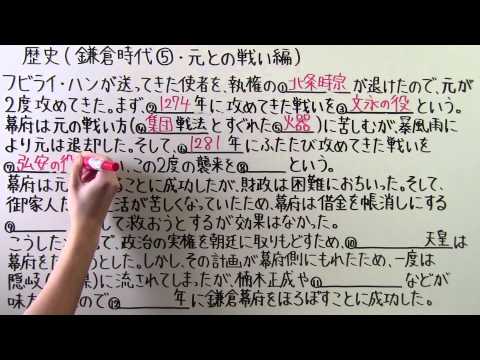 歴史(鎌倉時代⑤・元との戦い編)
フビライ・ハンが送ってきた使者を、執権の①北条時宗が退けたので、元が
2度攻めてきた。まず、②1274年に攻めてきた戦いを③文永の役という。
幕府は元の戦い方(④集団戦法とすぐれた⑤火器)に苦しむが、暴風雨に
より元は退却した。そして、⑥1281年にふたたび攻めてきた戦いを
⑦弘安の役、この2度の襲来を⑧という。
幕府は元ことに成功したが、財政は困難におちいった。そして、
御家人活が苦しくなっていたため、幕府は借金を帳消しにする
⑨して救おうとするが効果はなかった。
こうしたで、政治の実権を朝廷に取りもどすため、⑩天皇は
幕府をたおうとした。しかし、その計画が幕府側にもれたため、一度は
隠岐県)に流されてしまったが、楠木正成や⑪などが
味方ので⑫年に鎌倉幕府をほろぼすことに成功した。